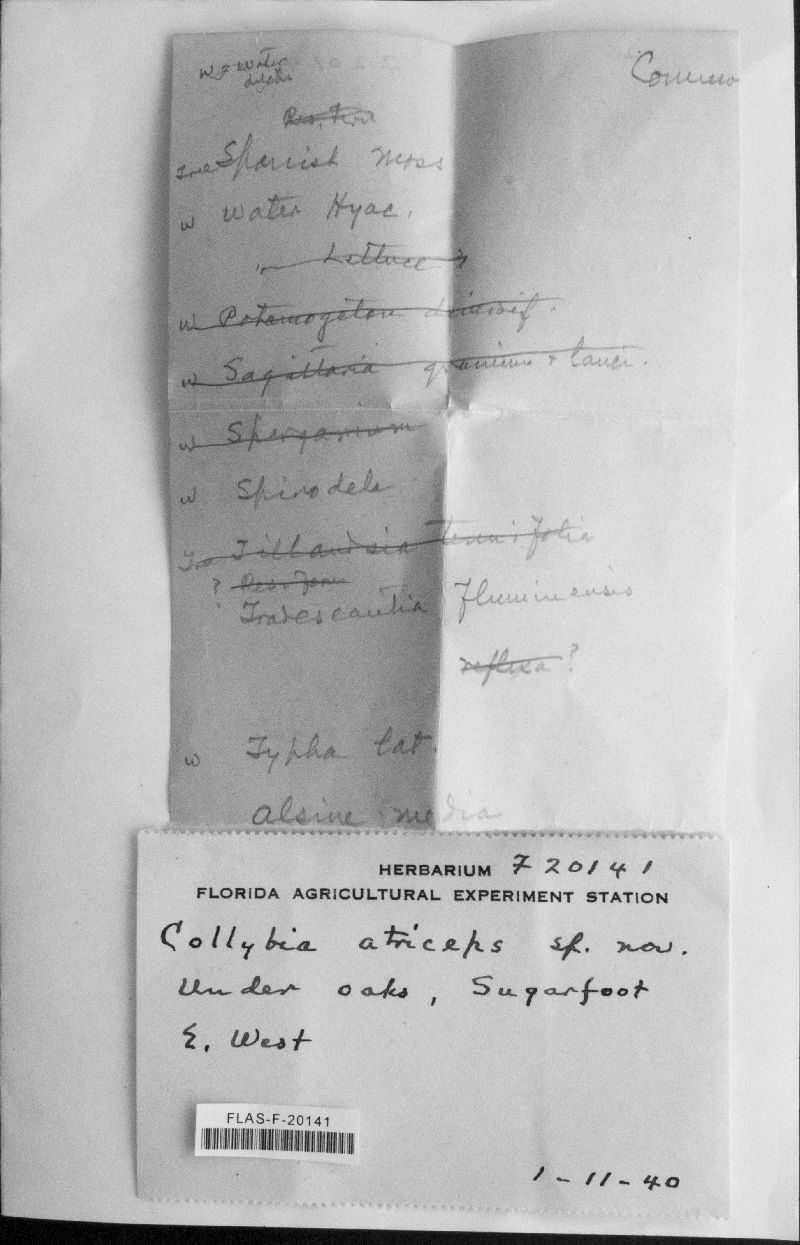 W = Water
Commo
Tree Spanish moss
w Water Hyac.
" Lettuce
w Potamogeton diversif.
w Sagittaria graminea & lanci.
w Sparganium
w Spirodela
Tillandsia tenuifolia
?
Tradescantia fluminensis
reflexa ?
w Typha lat.
Alsine media
HERBARIUM F 20141
FLORIDA AGRICULTURAL EXPERIMENT STATION
Collybia atriceps sp. nov.
Under oaks, Sugarfoot
E. West
FLAS-F-20141
1-11-40